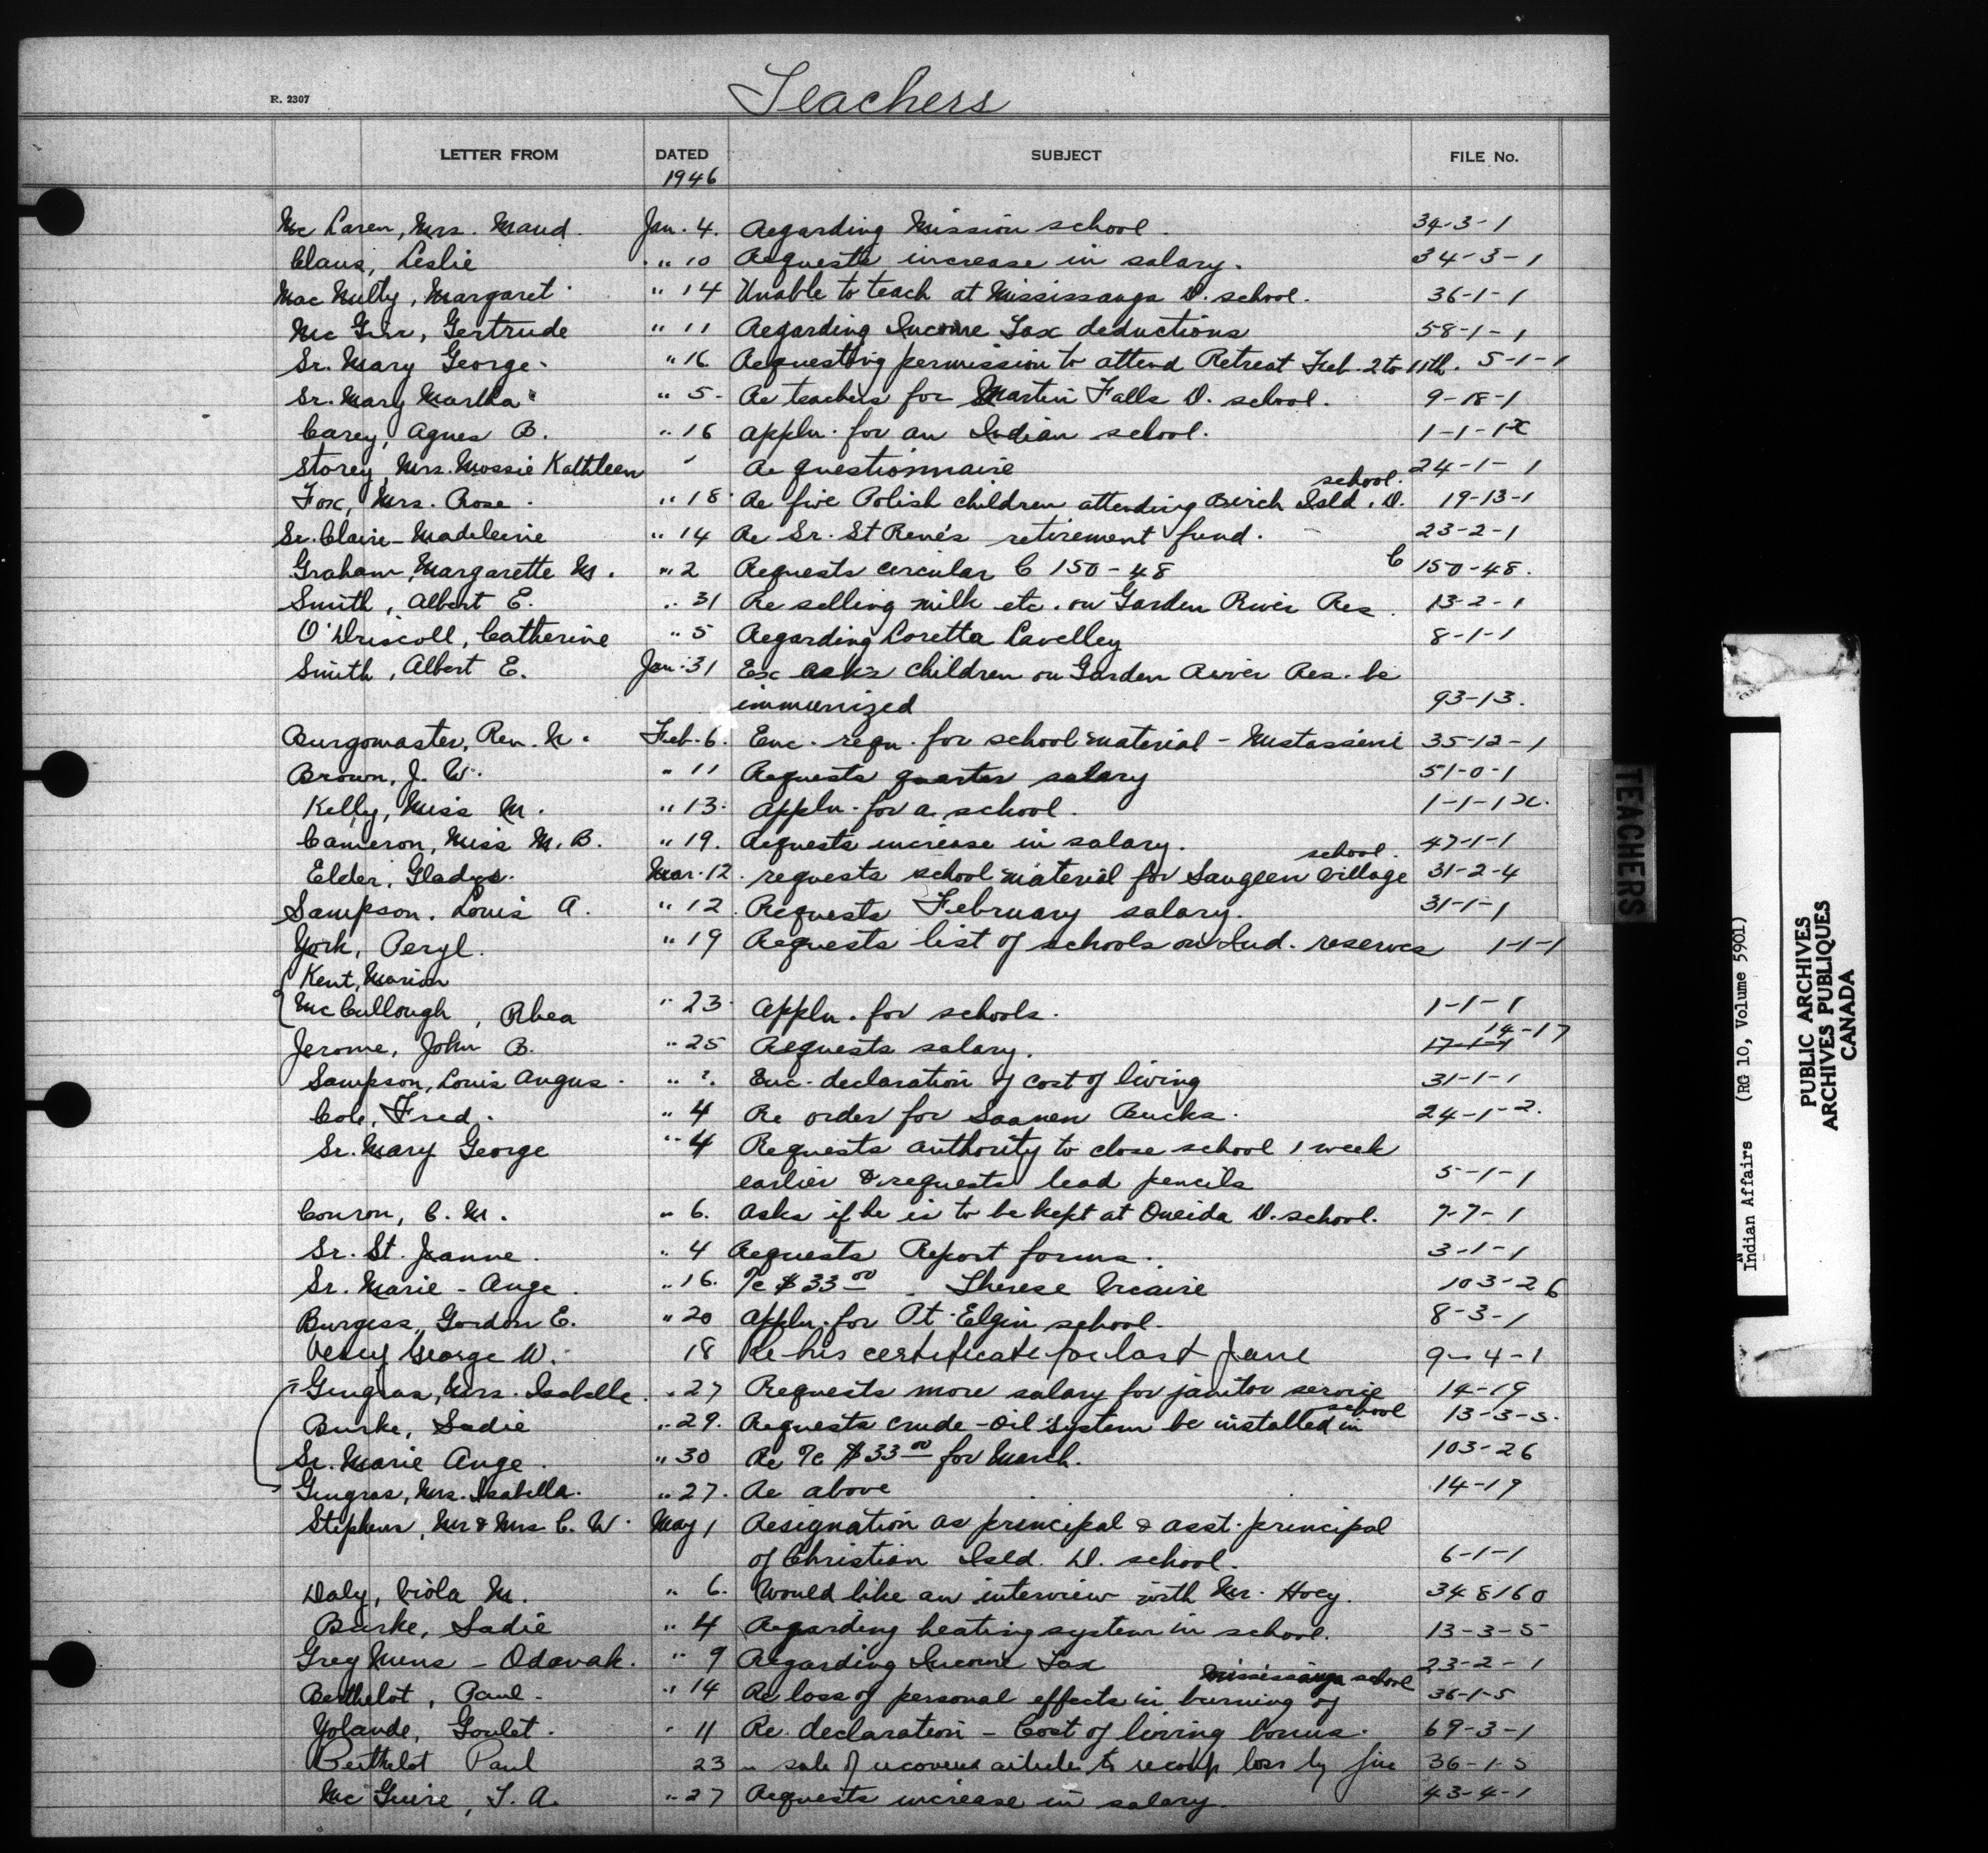 Teachers
R. 2307
LETTER FROM DATED SUBJECT FILE No.
1946
Mc Laren, Mrs. Maud. Jan. 4. Regarding Mission school. 34-3-1
Claus, Leslie " 10 Requests increase in salary. 34-3-1
Mac Nulty, Margaret " 14 Unable to teach at Mississauga D. school. 36-1-1
Gertrude " 11 Regarding Income Tax deductions 58-1-1
Sr. Mary George. " 16 Requesting permission to attend Retreat Feb. 2 to 11th. 5-1-1
Sr. Mary Martha " 5- Re teachers for Martin Falls D. school. 9-18-1
Carey, Agnes B. " 16 Appln. for an Indian school. 1-1-1x
Storey, Mrs. Mossie Kathleen " Re questionnaire 24-1-1
school.
Fox, Mrs. Rose. " 18 Re five Polish children attending Birch Isld. D. 19-13-1
Sr. Claire-Madeleine " 14 Re Sr. St René's retirement fund. 23-2-1
Graham, Margarette M. " 2 Requests circular C 150-48 C 150-48.
Smith, Albert E. " 31 Re selling milk etc. on Garden River Res. 13-2-1
O'Driscoll, Catherine " 5 Regarding Loretta Lavelley 8-1-1
Smith, Albert E. Jan. 31 asks children on Garden River Res. be
immunized 93-13.
Burgomaster, Rev. N. Feb. 6. Enc. reqn. for school material - Mistassini 35-12-1
Brown, J. W. " 11 Requests quarter salary 51-0-1
Kelly, Miss M. " 13. Appln. for a school. 1-1-1x.
Cameron, Miss M. B. " 19. Requests increase in salary. 47-1-1
school.
Elder, Gladys. Mar. 12. requests school material for Saugeen Village 31-2-4
Sampson, Louis A. " 12. Requests February salary. 31-1-1
York, Beryl. " 19 Requests list of schools on Ind. reserves 1-1-1
Kent, Marion
McCullough, Rhea " 23. Appln. for schools. 1-1-1
14-17
Jerome, John B. " 25 Requests salary. 17-1-4
Sampson, Louis Angus. " ?. Enc. declaration of cost of living 31-1-1
Cole, Fred. " 4 Re order for Saanen Bucks. 24-1-2.
Sr. Mary George " 4 Requests authority to close school 1 week
earlier & requests lead pencils 5-1-1
Conron, C. M. " 6. Asks if he is to be kept at Oneida D. school. 7-7-1
Sr. St. Jeanne. " 4 Requests Report forms. 3-1-1
Sr. Marie-Ange. " 16. $33 00 - Therese 103-26
Burgess, Gordon E. " 20 Appln. for Pt. Elgin school. 8-3-1
George W. 18 Re his certificate for last June 9-4-1
Gingras, Mrs. Isabelle. " 27 Requests more salary for janitor service 14-19
school
Burke, Sadie " 29. Requests crude-oil system be installed in 13-3-5.
Sr. Marie Ange. " 30 Re $33 00 for March. 103-26
Gingras, Mrs. Isabella. " 27. Re above 14-19
Stephens, Mr & Mrs C. W. May 1 Resignation as principal & asst. principal
of Christian Isld. D. school. 6-1-1
Daly, Viola M. " 6. Would like an interview with Mr. Hoey. 348160
Burke, Sadie " 4 Regarding heating system in school. 13-3-5
Grey Nuns - Odanak. " 9 Regarding Income Tax 23-2-1
Mississauga school
Berthelot, Paul. " 14 Re loss of personal effects in burning of 36-1-5
Yolande, Goulet. " 11 Re declaration - Cost of living bonus. 69-3-1
Berthelot Paul 23 " sale of articles to loss by fire 36-1-5
McGuire, T. A. " 27 Requests increase in salary. 43-4-1
TEACHERS
Indian Affairs (RG 10, Volume 5901)
PUBLIC ARCHIVES
ARCHIVES PUBLIQUES
CANADA